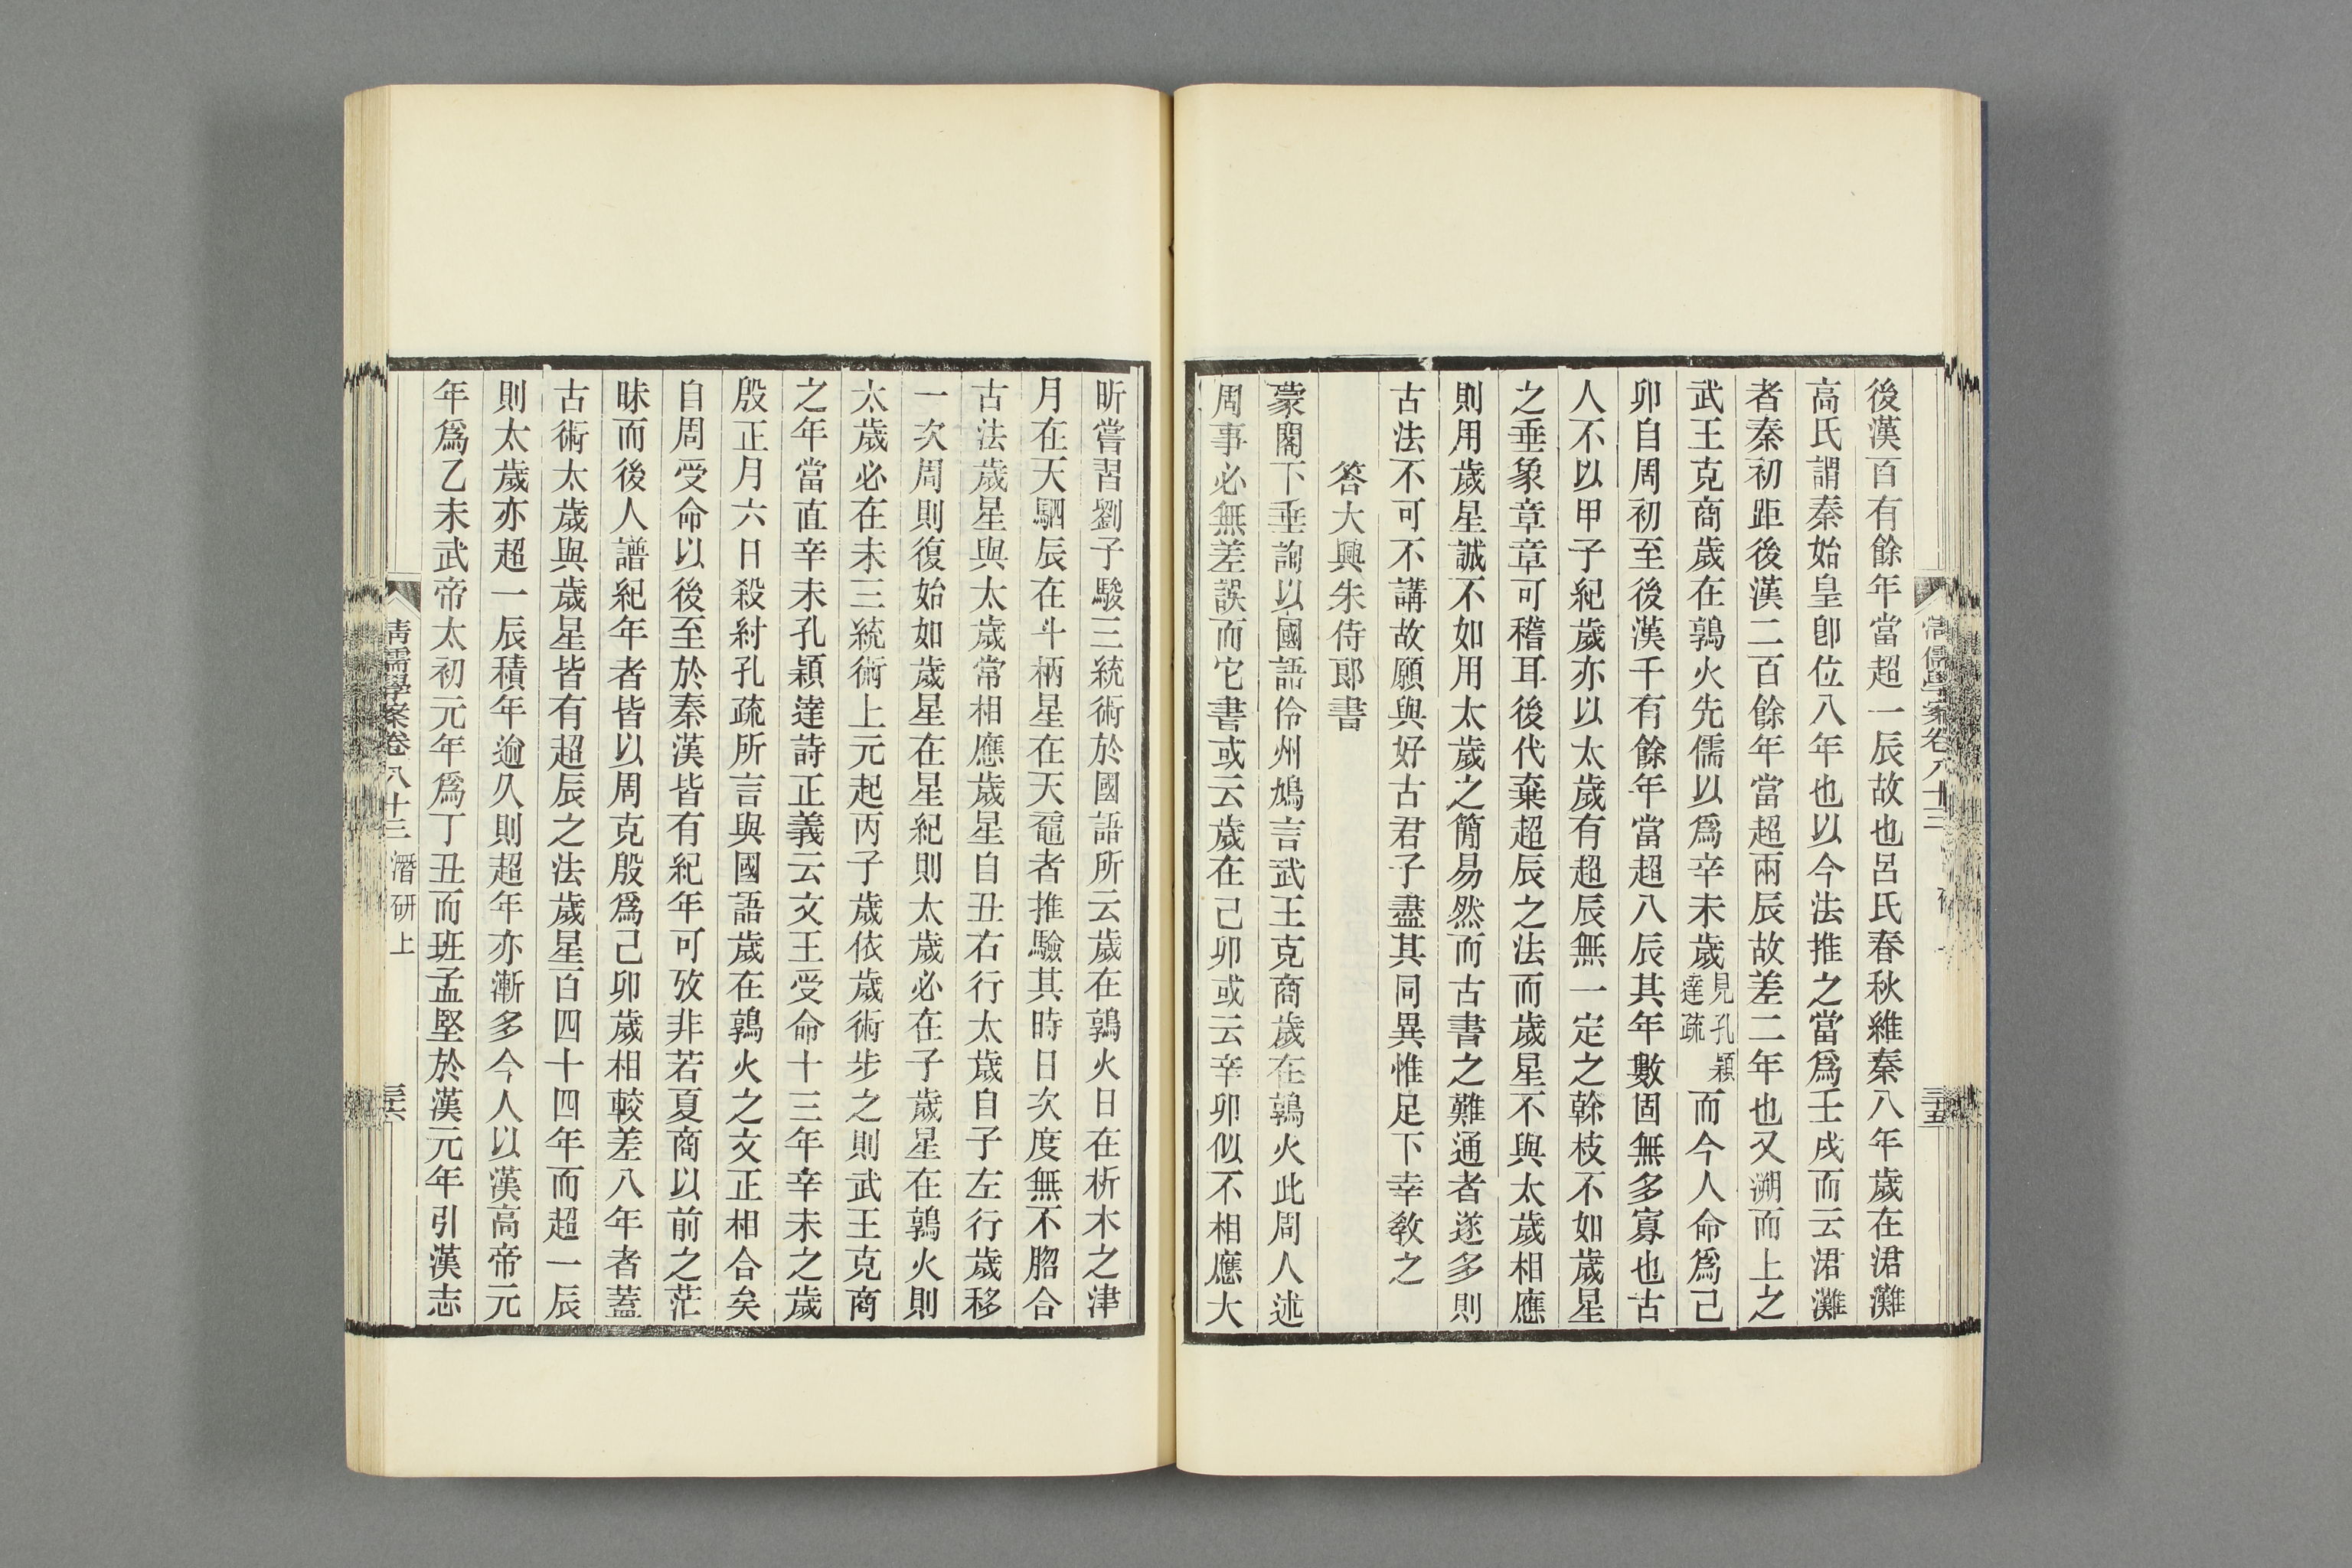 後漢百有餘年當超一辰故也呂氏春秋維秦八年歲在涒灘
高氏謂秦始皇卽位八年也以今法推之當爲壬戌而云涒灘
者秦初距後漢二百餘年當超兩辰故差二年也又溯而上之
武王克商歲在鶉火先儒以爲辛未歲見孔穎達疏而今人命爲己
卯自周初至後漢千有餘年當超八辰其年數固無多寡也古
人不以甲子紀歲亦以太歲有超辰無一定之榦枝不如歲星
之垂象章章可稽耳後代棄超辰之法而歲星不與太歲相應
則用歲星誠不如用太歲之簡易然而古書之難通者遂多則
古法不可不講故願與好古君子盡其同異惟足下幸敎之
答大興朱侍郎書
蒙閣下垂詢以國語伶州鳩言武王克商歲在鶉火此周人述
周事必無差誤而它書或云歲在己卯或云辛卯似不相應大
昕嘗習劉子駿三統術於國語所云歲在鶉火日在析木之津
月在天駟辰在斗柄星在天黿者推驗其時日次度無不脗合
古法歲星與太歲常相應歲星自丑右行太歲自子左行歲移
一次周則復始如歲星在星紀則太歲必在子歲星在鶉火則
太歲必在未三統術上元起丙子歲依歲術步之則武王克商
之年當直辛未孔穎達詩正義云文王受命十三年辛未之歲
殷正月六日殺紂孔疏所言與國語歲在鶉火之文正相合矣
自周受命以後至於秦漢皆有紀年可攷非若夏商以前之茫
昧而後人譜紀年者皆以周克殷爲己卯歲相較差八年者蓋
古術太歲與歲星皆有超辰之法歲星百四十四年而超一辰
則太歲亦超一辰積年逾久則超年亦漸多今人以漢高帝元
年爲乙未武帝太初元年爲丁丑而班孟堅於漢元年引漢志
清儒學案卷八十三 潛研上
三十六